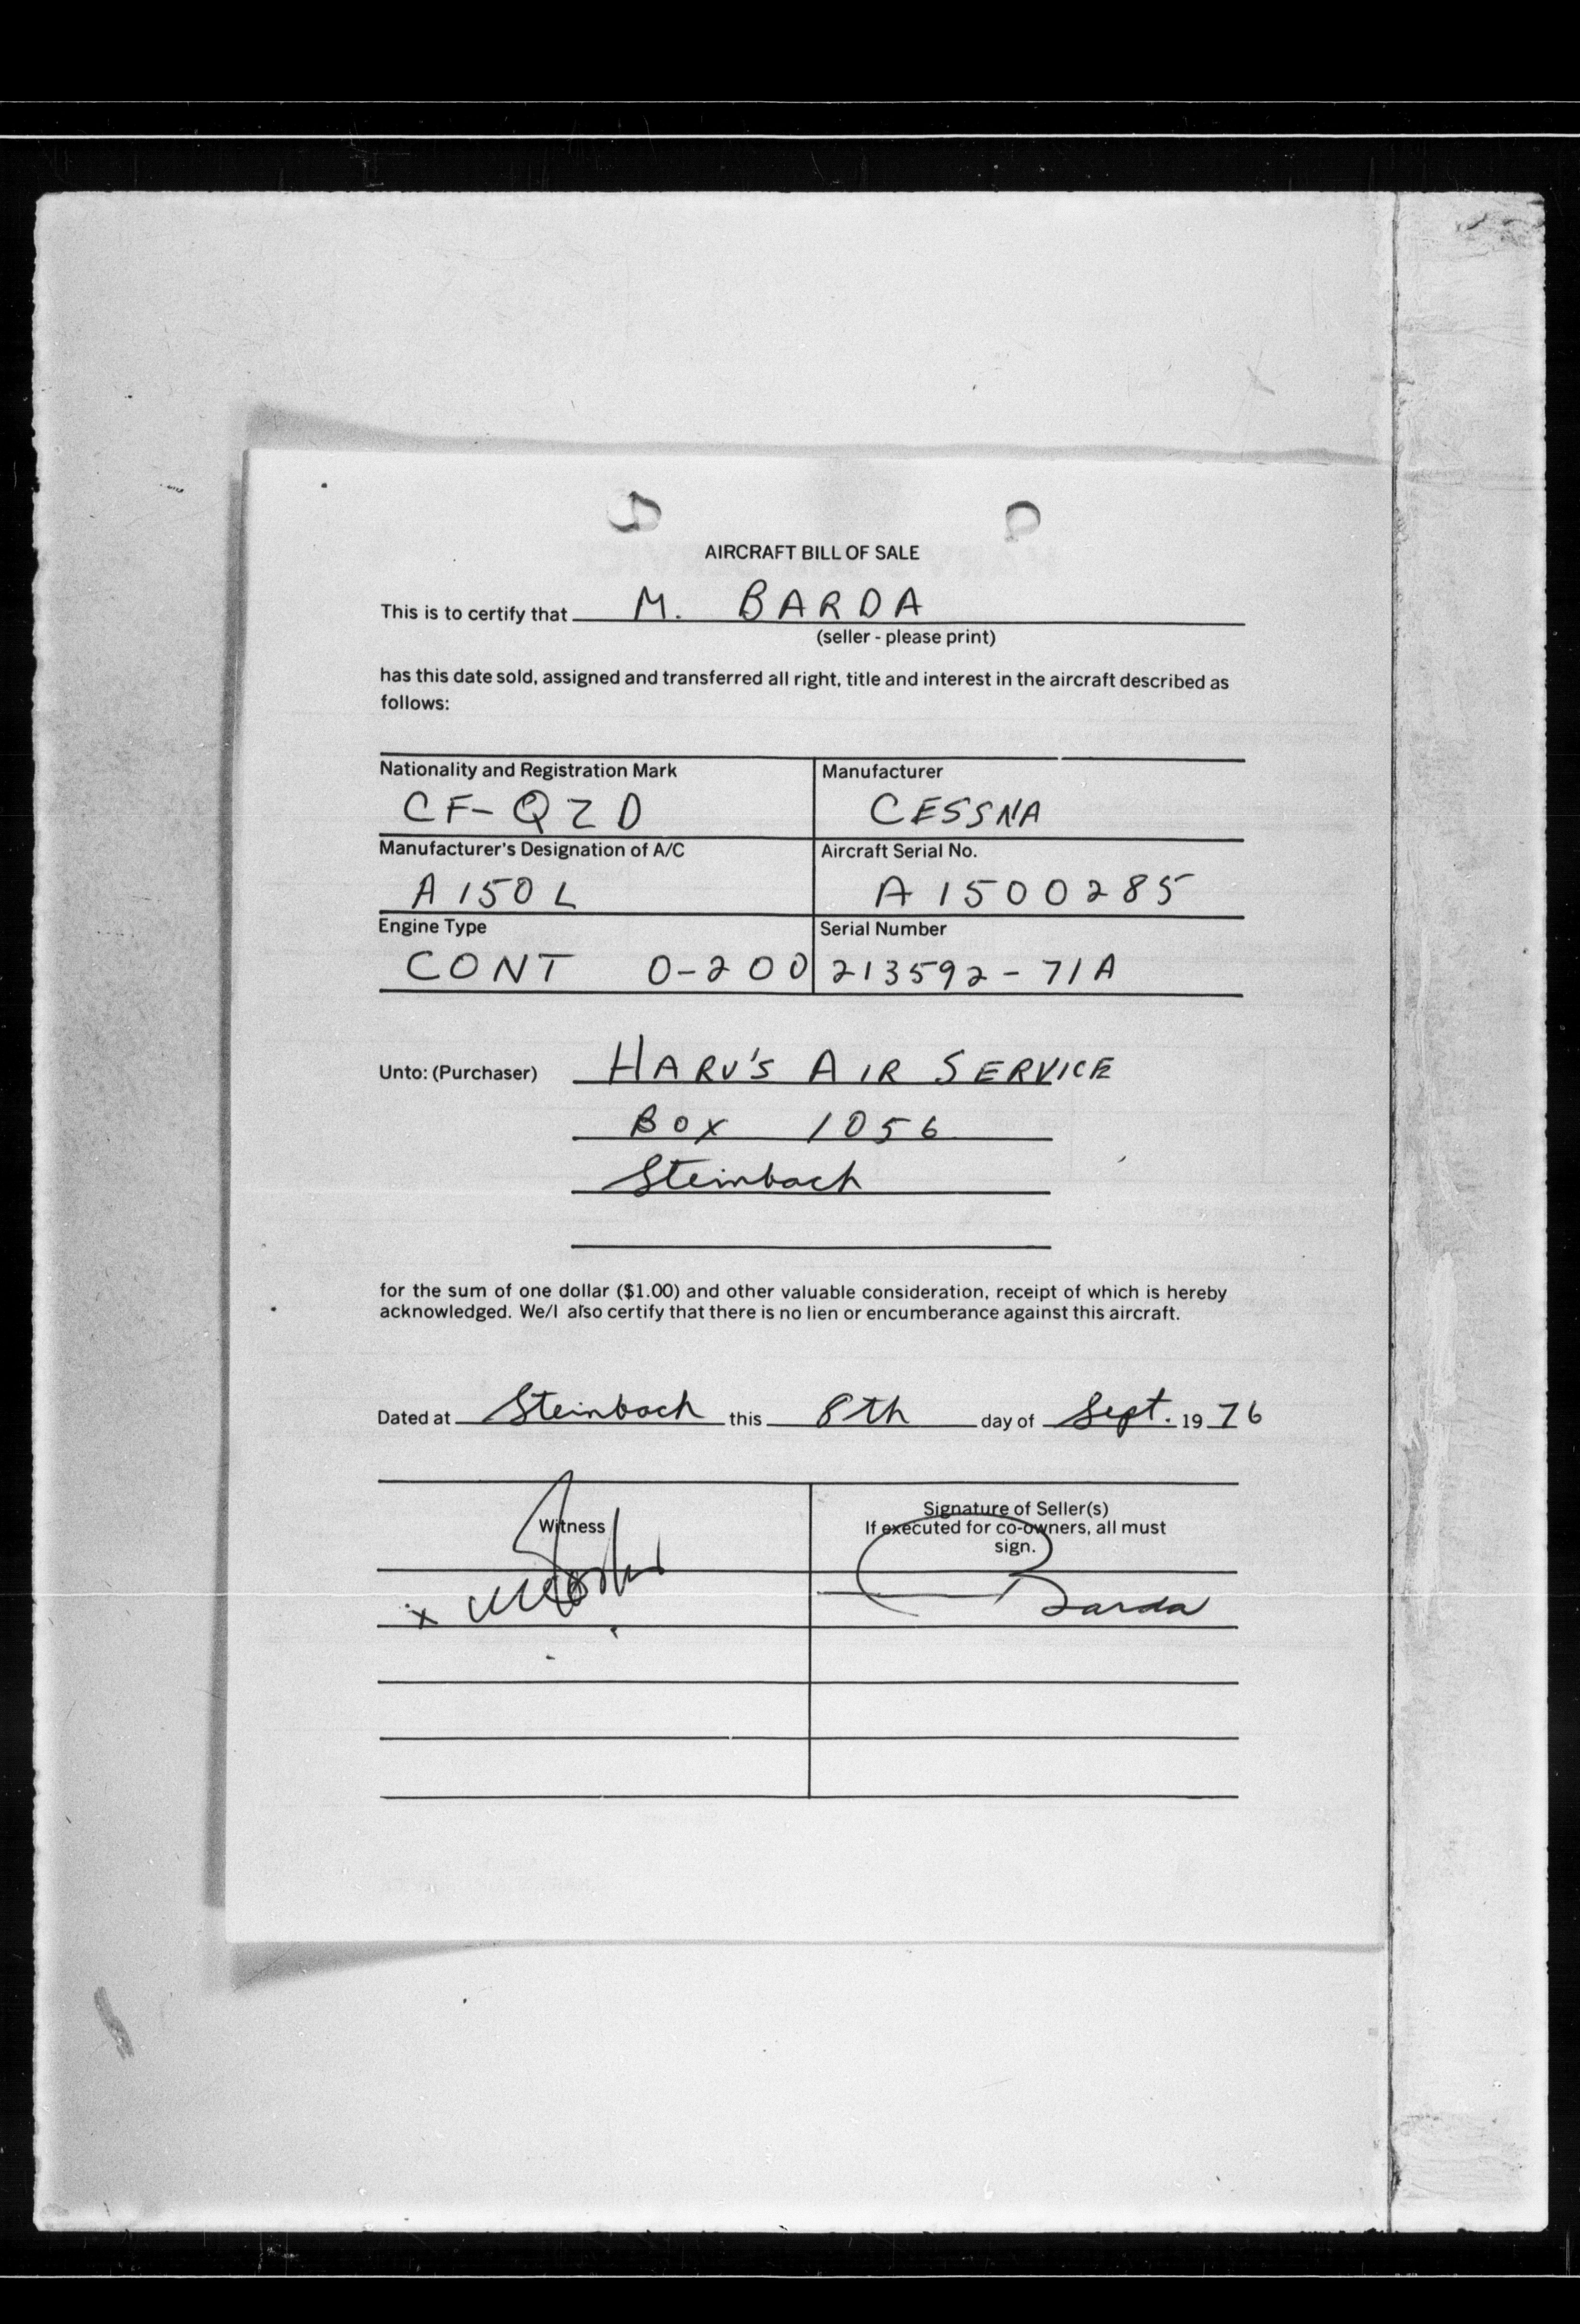 AIRCRAFT BILL OF SALE
This is to certify that M. BARDA
(seller - please print)
has this date sold, assigned and transferred all right, title and interest in the aircraft described as
follows:
Nationality and Registration Mark Manufacturer
CF-QZD CESSNA
Manufacturer's Designation of A/C Aircraft Serial No.
A150L A1500285
Engine Type Serial Number
CONT O-200 213592-71A
Unto: (Purchaser) HARV'S AIR SERVICE
BOX 1056
Steinbach
for the sum of one dollar ($1.00) and other valuable consideration, receipt of which is hereby
acknowledged. We/I also certify that there is no lien or encumberance against this aircraft.
Dated at Steinbach this 8th day of Sept. 1976
Signature of Seller(s)
Witness If executed for co-owners, all must
sign.
x Barda